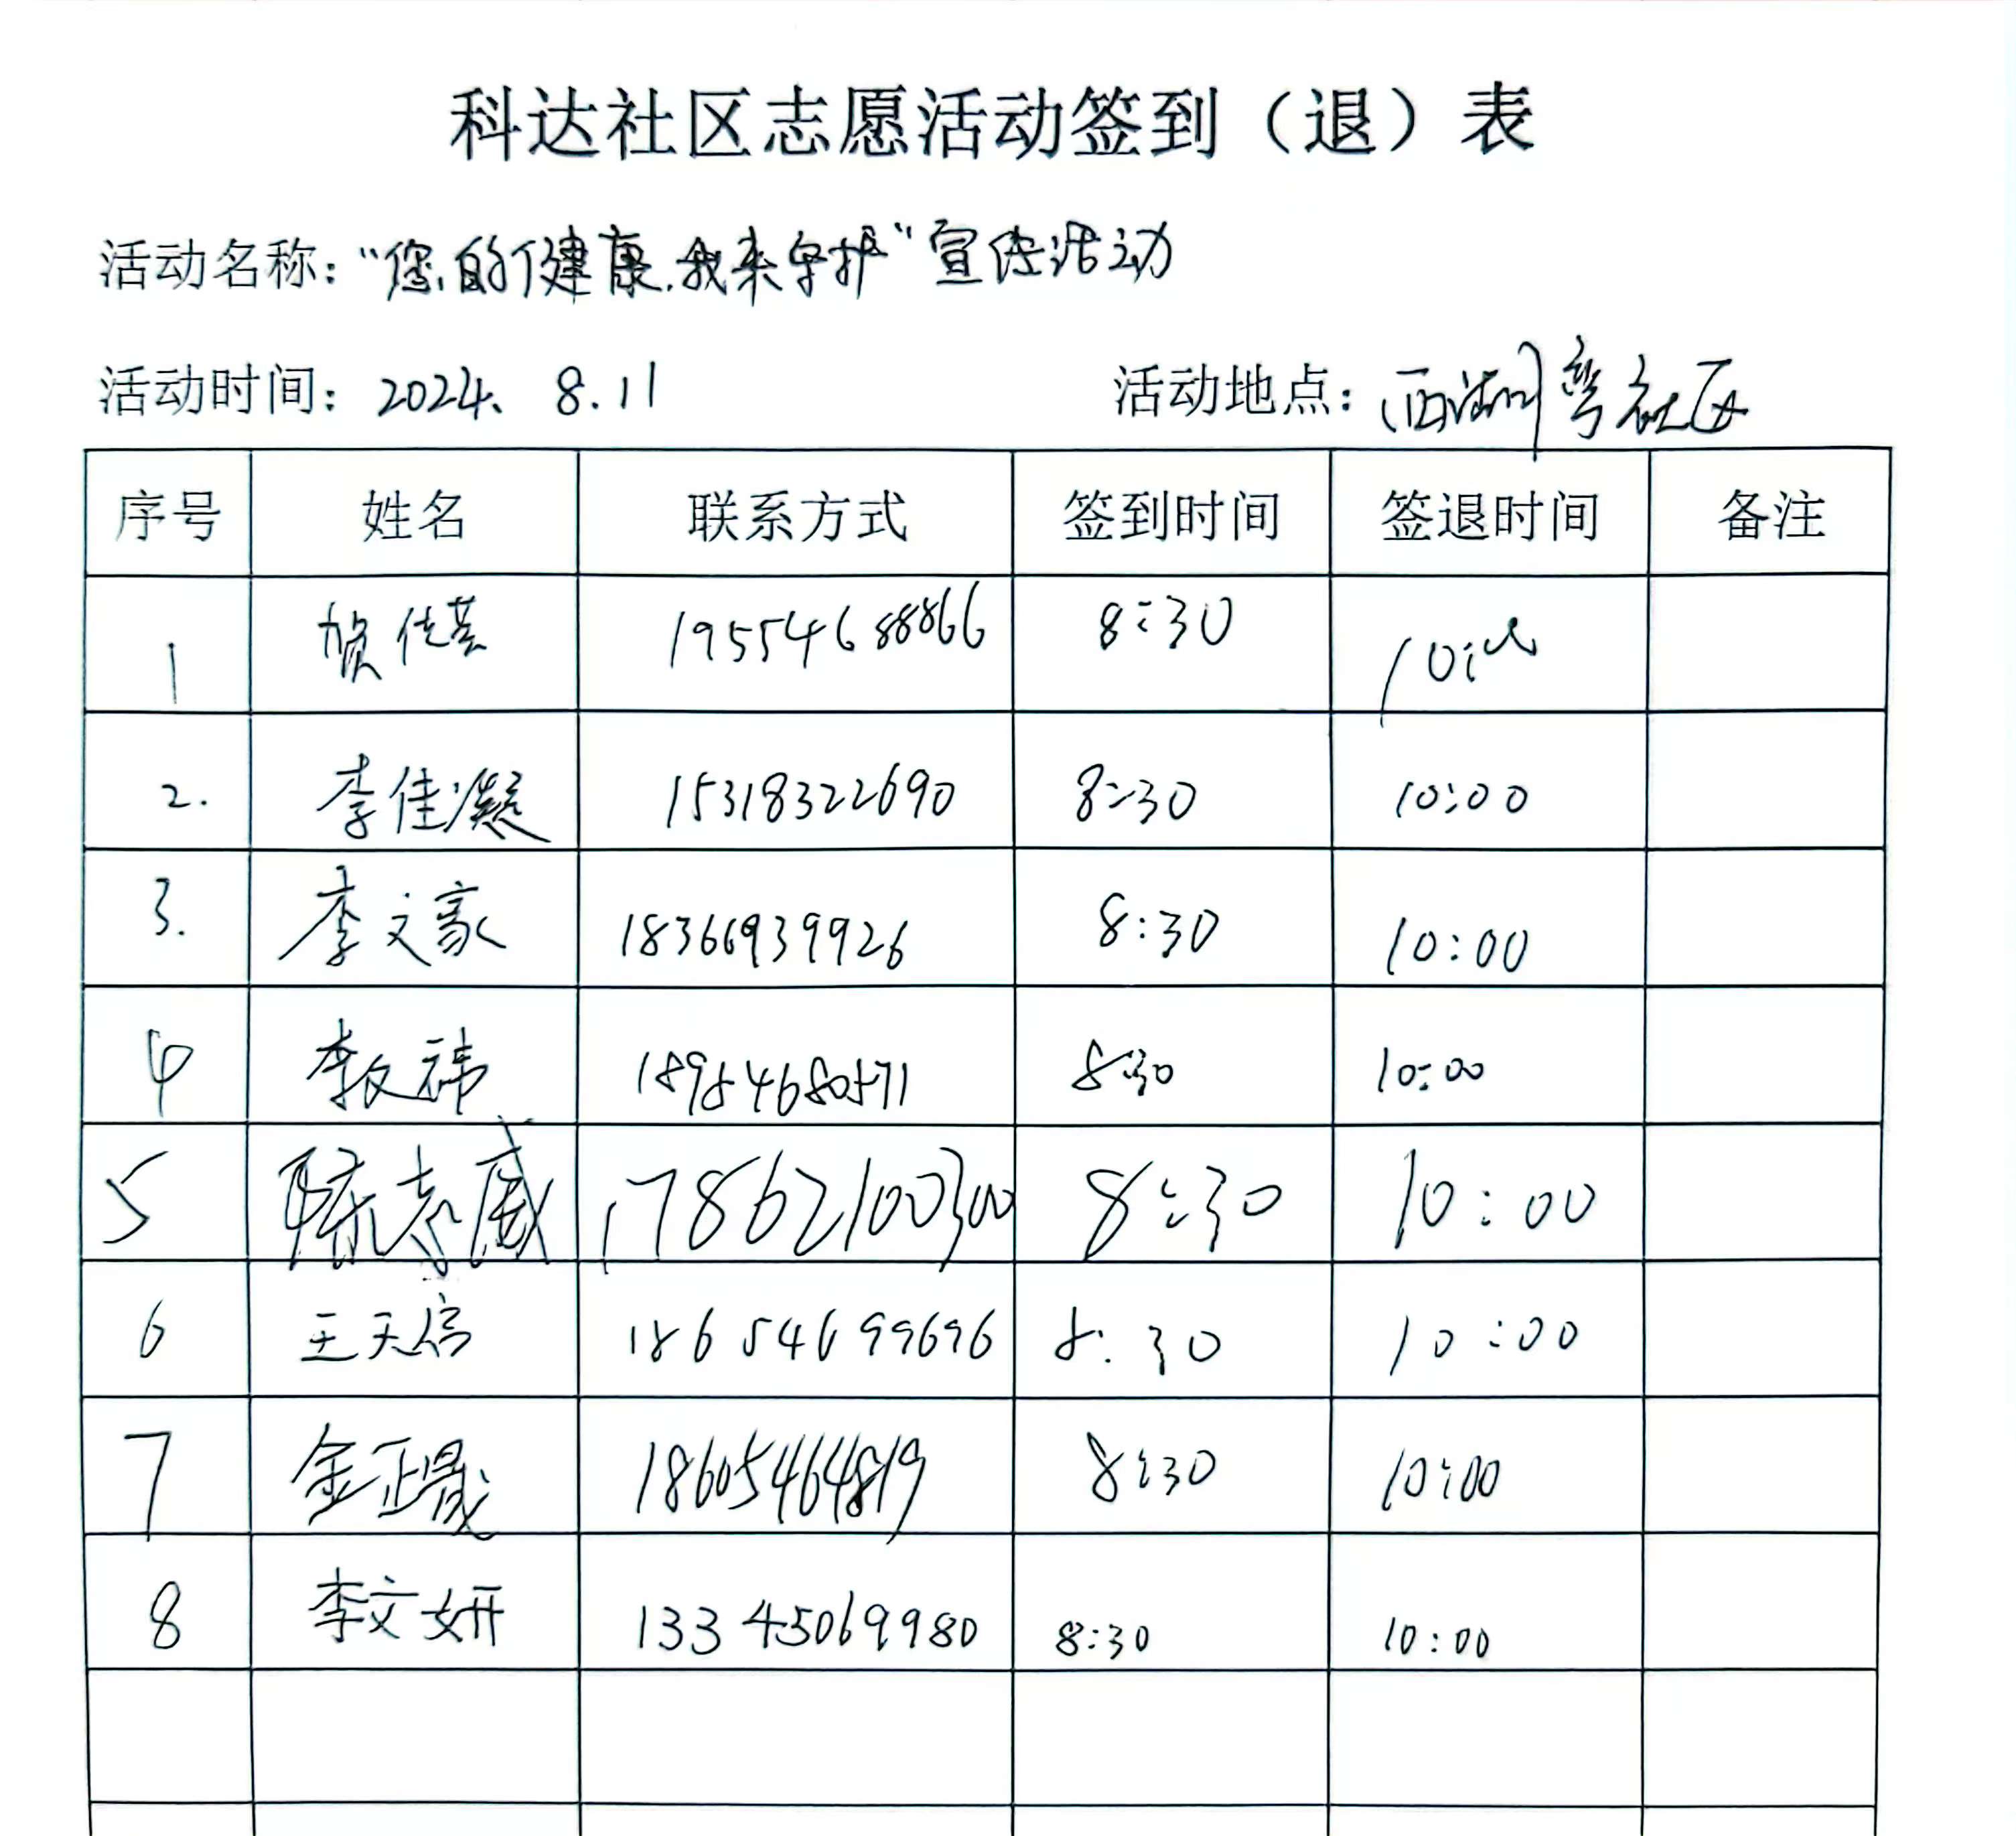 科达社区志愿活动签到（退）表
活动名称："您的健康,我来守护"宣传活动
活动时间：2024. 8.11 活动地点：西湖湾社区
序号 姓名 联系方式 签到时间 签退时间 备注
1 19554688866 8:30 10:00
2. 李佳凝 15318322690 8:30 10:00
3. 李文豪 18366939926 8:30 10:00
4 李文祎 18954680571 8:30 10:00
5 陈志威 17862100300 8:30 10:00
6 王天信 18654699696 8:30 10:00
7 金正晟 18605464819 8:30 10:00
8 李文妍 13345069980 8:30 10:00